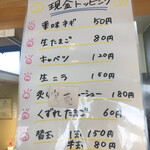 現金トッピング
薬味ネギ 50円
生たまご 80円
キャベツ 120円
生ニラ 150円
炙り チャーシュー 180円
くずれたまご 60円
替玉 1玉 150円
半玉 80円